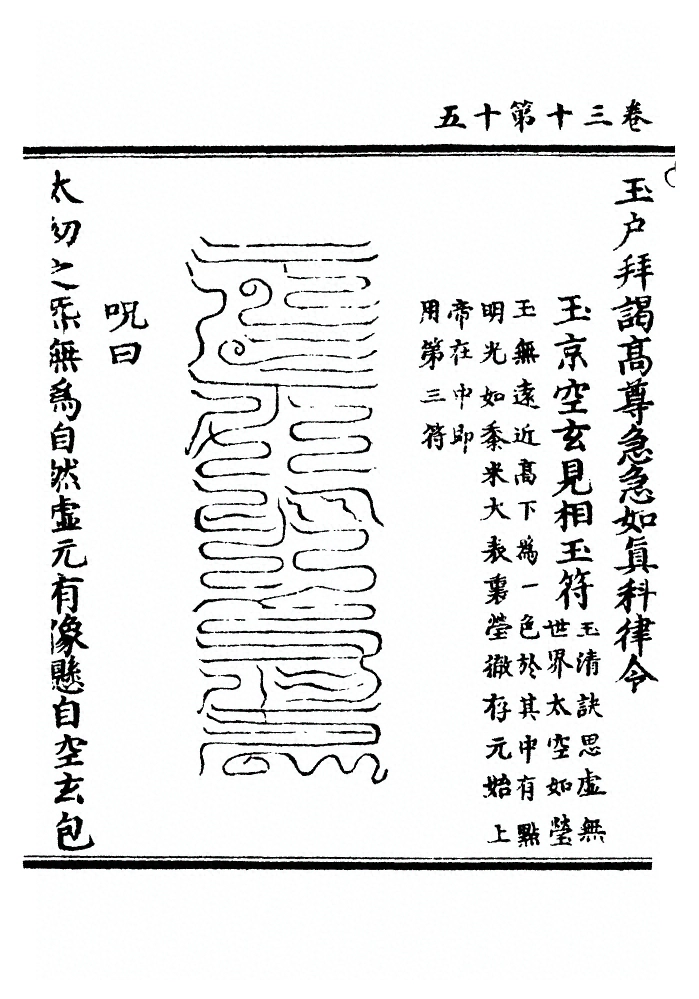 卷三十第十五
玉户拜謁髙尊急急如眞科律令
玉京空玄見相玉符
玉清訣思虛無
世界太空如瑩
玉無遠近髙下爲一色於其中有點
明光如黍米大表裏瑩徹存元始上
帝在中即
用第三符
呪曰
太初之炁無爲自然虛元有像懸自空玄包